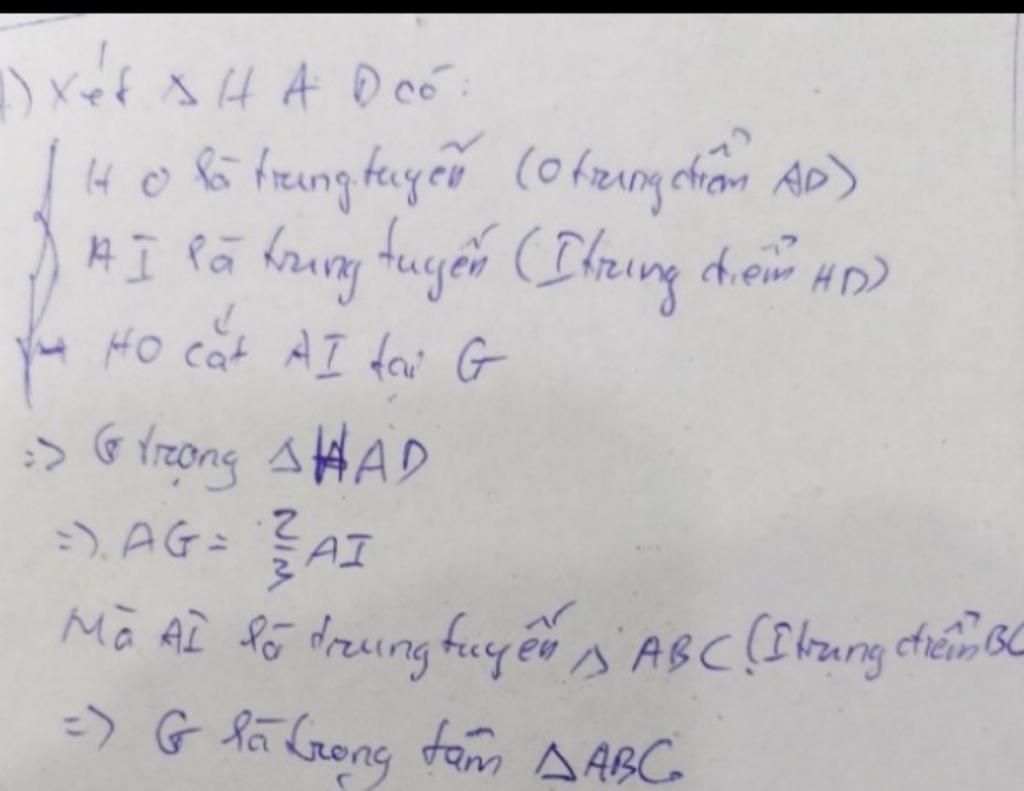 ) Xét Δ H A D có:
H O là trung tuyến (O trung điểm AD)
A I là trung tuyến (I trung điểm HD)
HO cắt AI tại G
=> G trọng Δ HAD
=> AG = 2/3 AI
Mà AI là trung tuyến Δ ABC (I trung điểm BC
=> G là trọng tâm Δ ABC